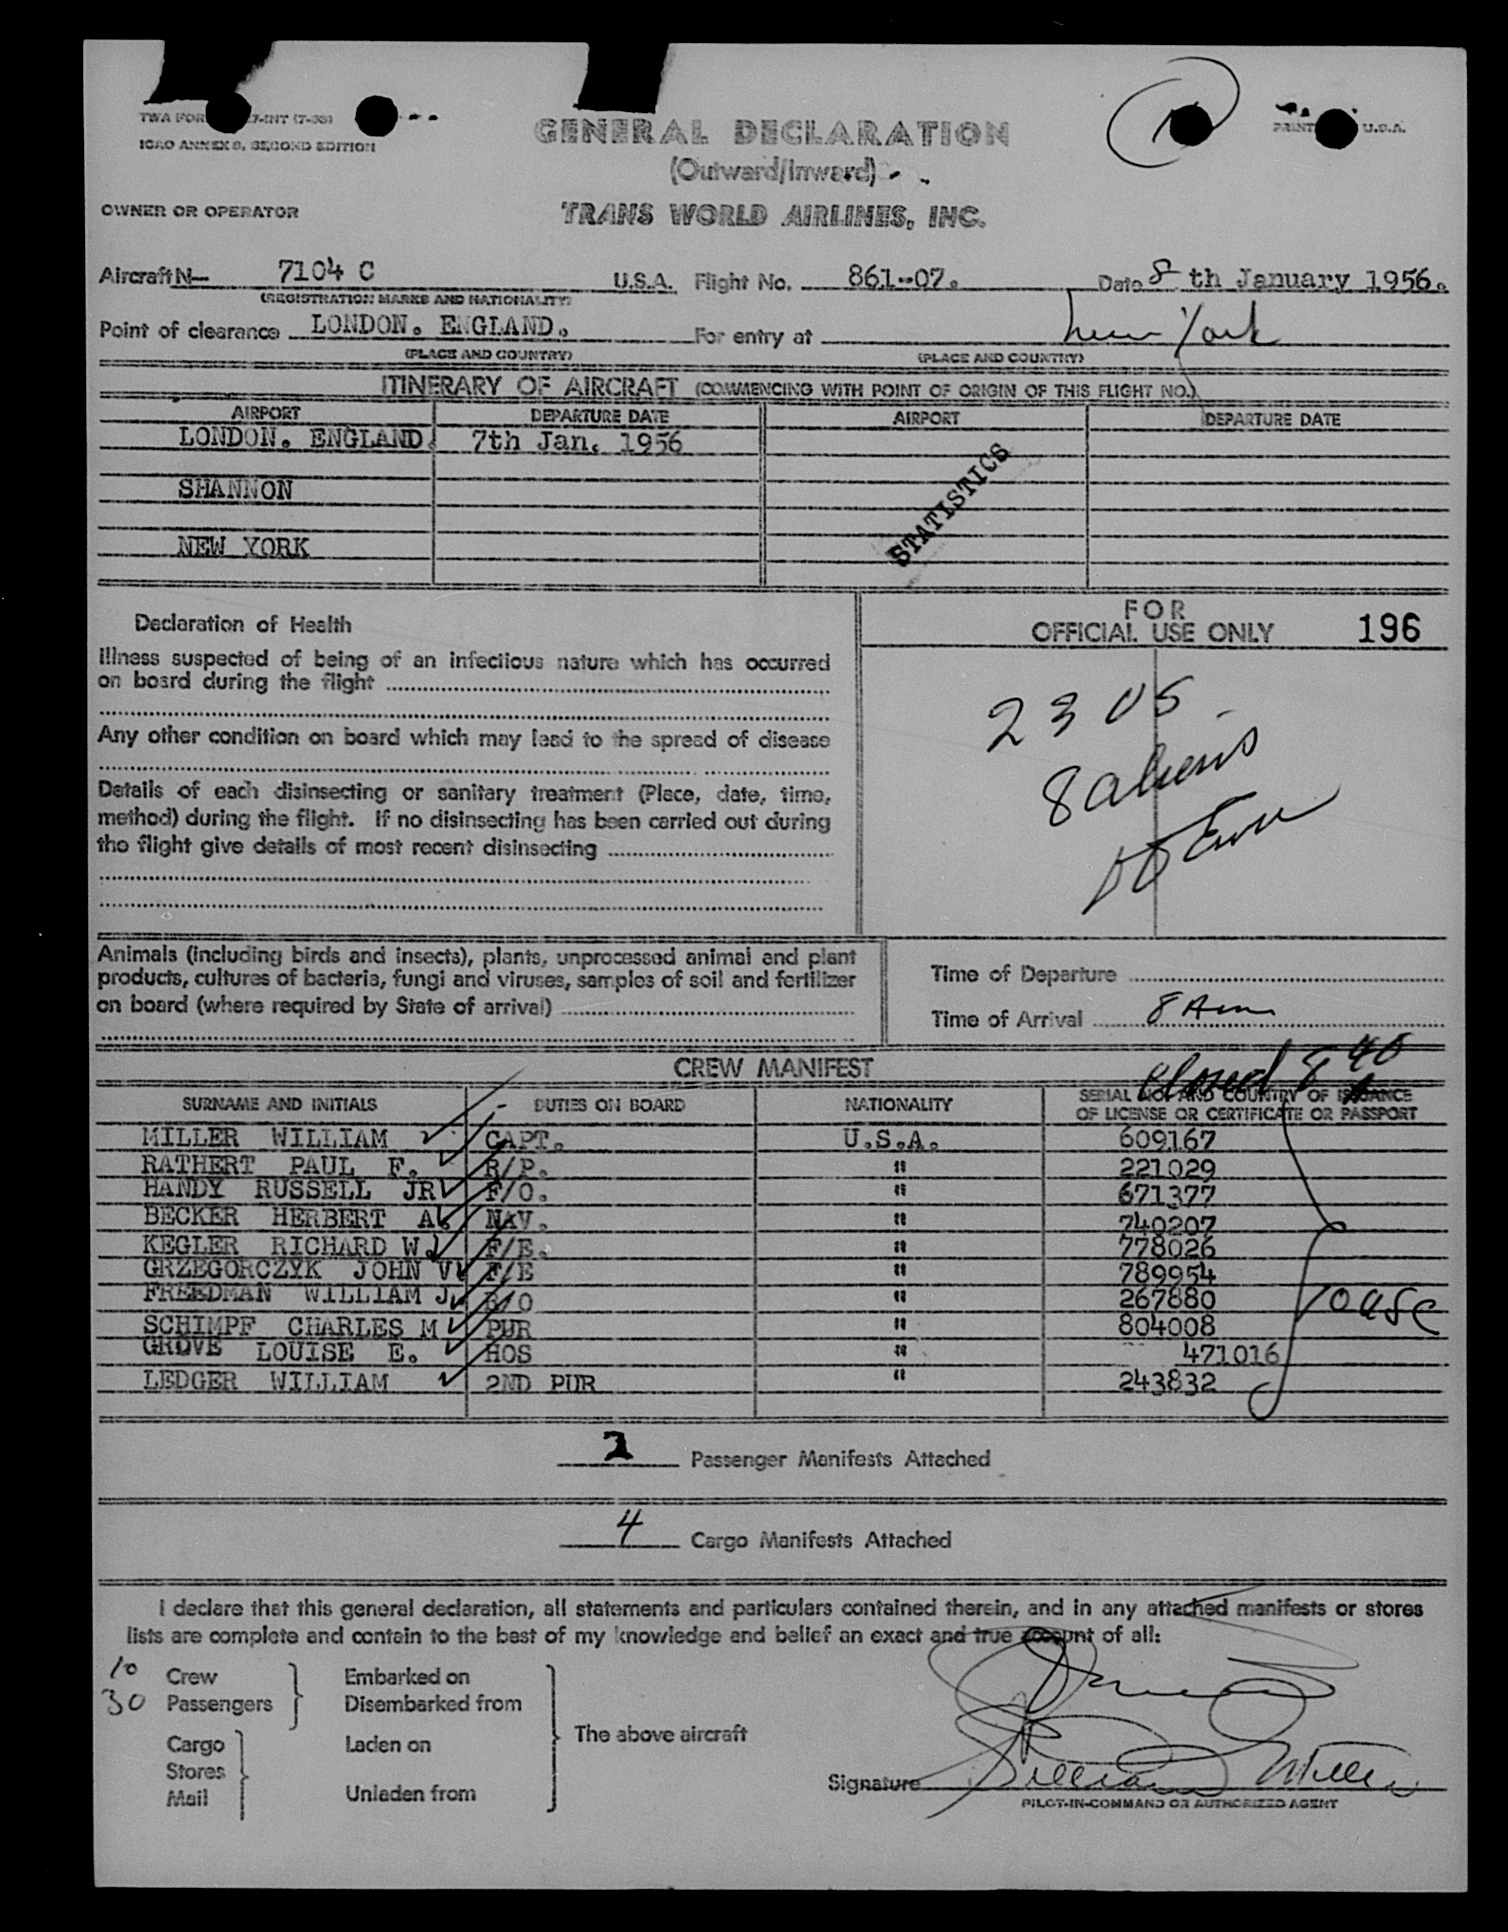 TWA FOR 7-INT (7-53)
ICAO ANNEX 9, SECOND EDITION
GENERAL DECLARATION
U.S.A.
(Outward/Inward)
OWNER OR OPERATOR TRANS WORLD AIRLINES, INC.
Aircraft N— 7104 C U.S.A. Flight No. 861--07. Date 8 th January 1956.
(REGISTRATION MARKS AND NATIONALITY)
Point of clearance LONDON. ENGLAND. For entry at New York
(PLACE AND COUNTRY) (PLACE AND COUNTRY)
ITINERARY OF AIRCRAFT (COMMENCING WITH POINT OF ORIGIN OF THIS FLIGHT NO.)
AIRPORT DEPARTURE DATE AIRPORT DEPARTURE DATE
LONDON. ENGLAND. 7th Jan. 1956
SHANNON
STATISTICS
NEW YORK
Declaration of Health
FOR
OFFICIAL USE ONLY 196
Illness suspected of being of an infectious nature which has occurred
on board during the flight
Any other condition on board which may lead to the spread of disease
Details of each disinsecting or sanitary treatment (Place, date, time,
method) during the flight. If no disinsecting has been carried out during
the flight give details of most recent disinsecting
2305
8 aliens
Animals (including birds and insects), plants, unprocessed animal and plant
products, cultures of bacteria, fungi and viruses, samples of soil and fertilizer
on board (where required by State of arrival)
Time of Departure
Time of Arrival 8 Am
closed 8 40 A
CREW MANIFEST
SURNAME AND INITIALS DUTIES ON BOARD NATIONALITY SERIAL NO. AND COUNTRY OF ISSUANCE
OF LICENSE OR CERTIFICATE OR PASSPORT
MILLER WILLIAM CAPT. U.S.A. 609167
RATHERT PAUL F. R/P. " 221029
HANDY RUSSELL JR F/O. " 671377
BECKER HERBERT A. NAV. " 740207
KEGLER RICHARD W. F/E. " 778026
GRZEGORCZYK JOHN V. F/E " 789954
FREEDMAN WILLIAM J. R/O " 267880
SCHIMPF CHARLES M PUR " 804008
GROVE LOUISE E. HOS " 471016
LEDGER WILLIAM 2ND PUR " 243832
2 Passenger Manifests Attached
4 Cargo Manifests Attached
I declare that this general declaration, all statements and particulars contained therein, and in any attached manifests or stores
lists are complete and contain to the best of my knowledge and belief an exact and true account of all:
10 Crew Embarked on
30 Passengers Disembarked from
The above aircraft
Cargo Laden on
Stores
Mail Unladen from
Signature William Miller
PILOT-IN-COMMAND OR AUTHORIZED AGENT